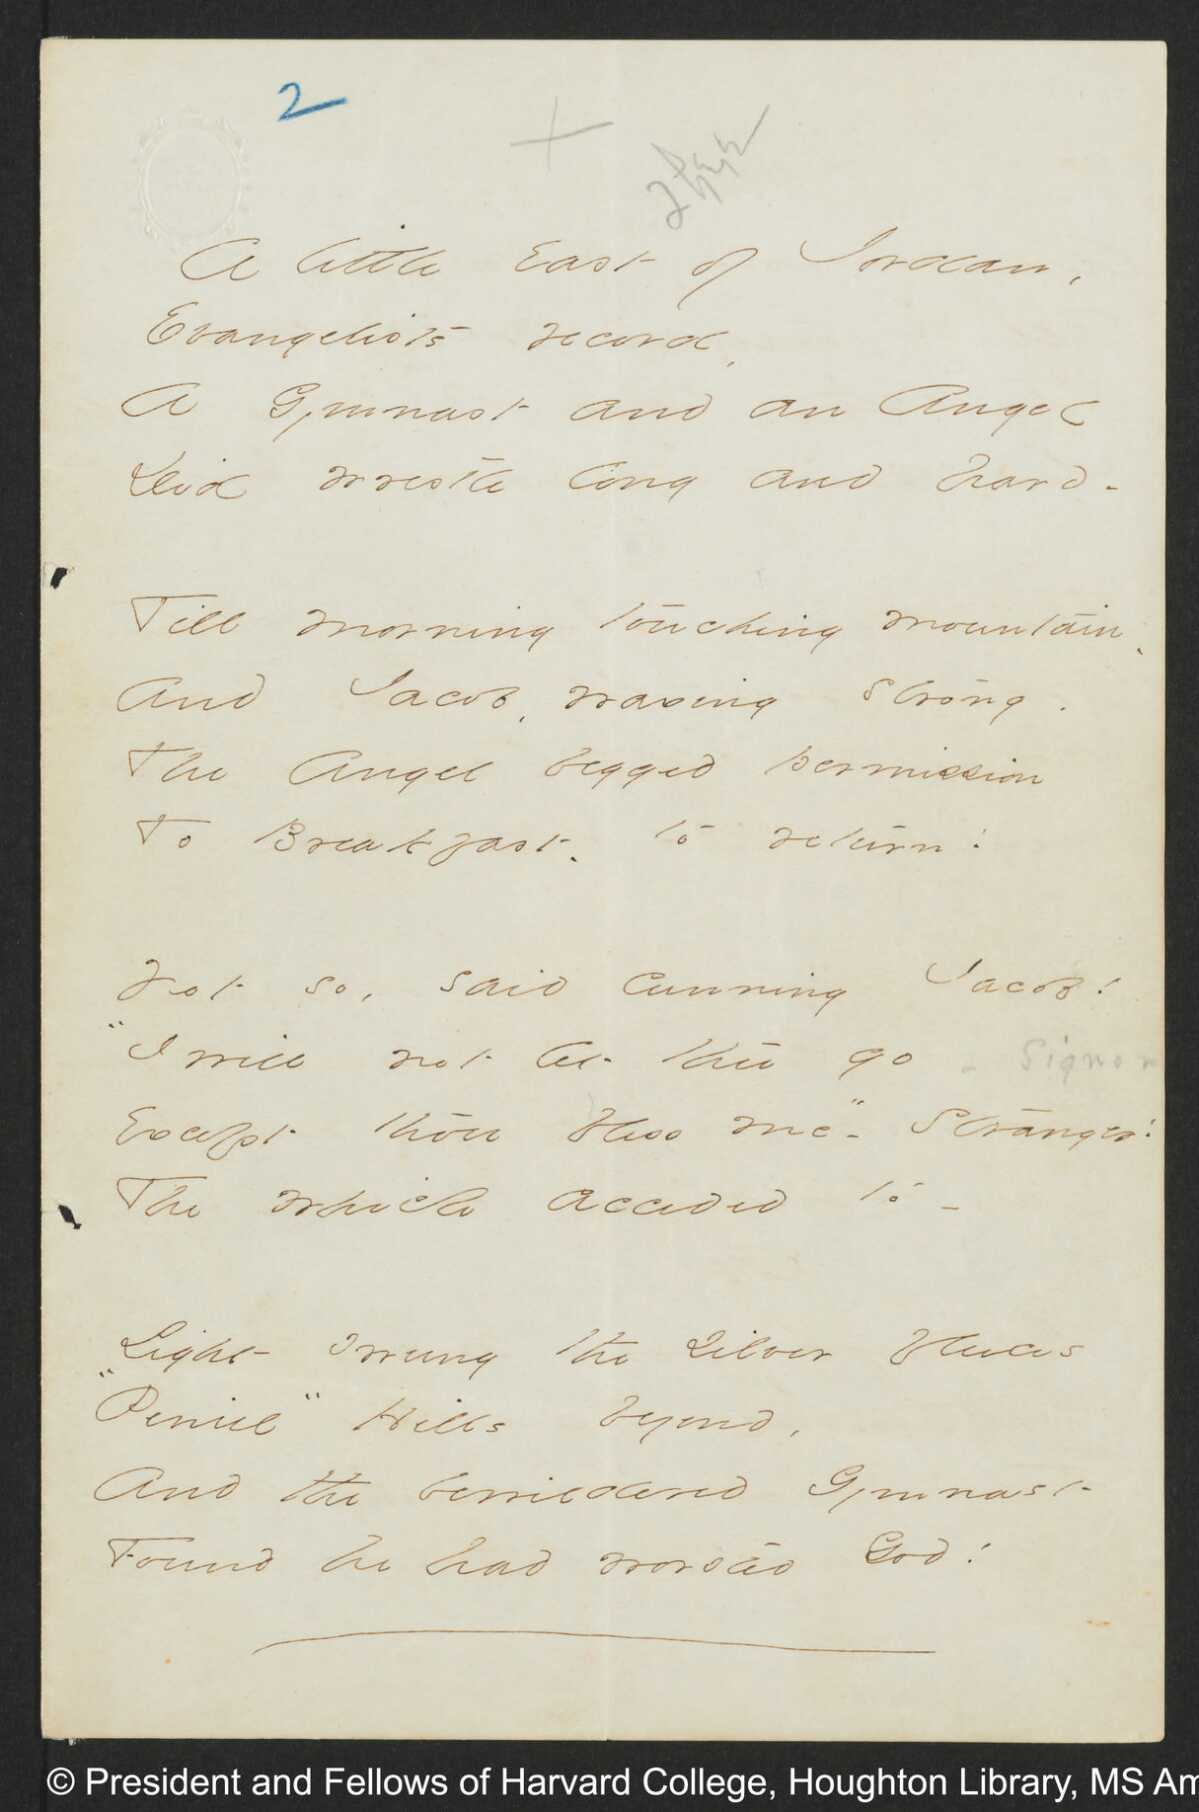 2
A little East of Jordan,
Evangelists record,
A Gymnast and an Angel
Did wrestle long and hard -
Till morning touching mountain,
And Jacob, waxing strong,
The Angel begged permission
To Breakfast, to return!
Not so, said cunning Jacob!
"I will not let thee go - Signor
Except thou bless me" - Stranger!
The which acceded to -
Light swung the silver fleeces
"Peniel" Hills beyond,
And the bewildered Gymnast
Found he had worsted God!
© President and Fellows of Harvard College, Houghton Library, MS Am